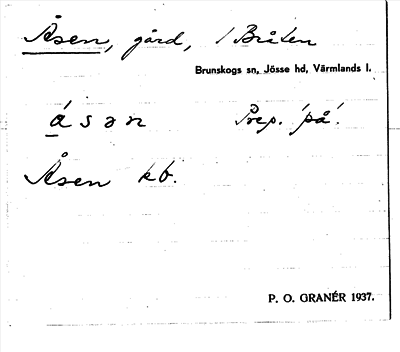 Åsen, gård, / Bråten
Brunskogs sn, Jösse hd, Värmlands l.
ás ə n Prep. 'på'.
Åsen kb.
P. O. GRANÉR 1937.